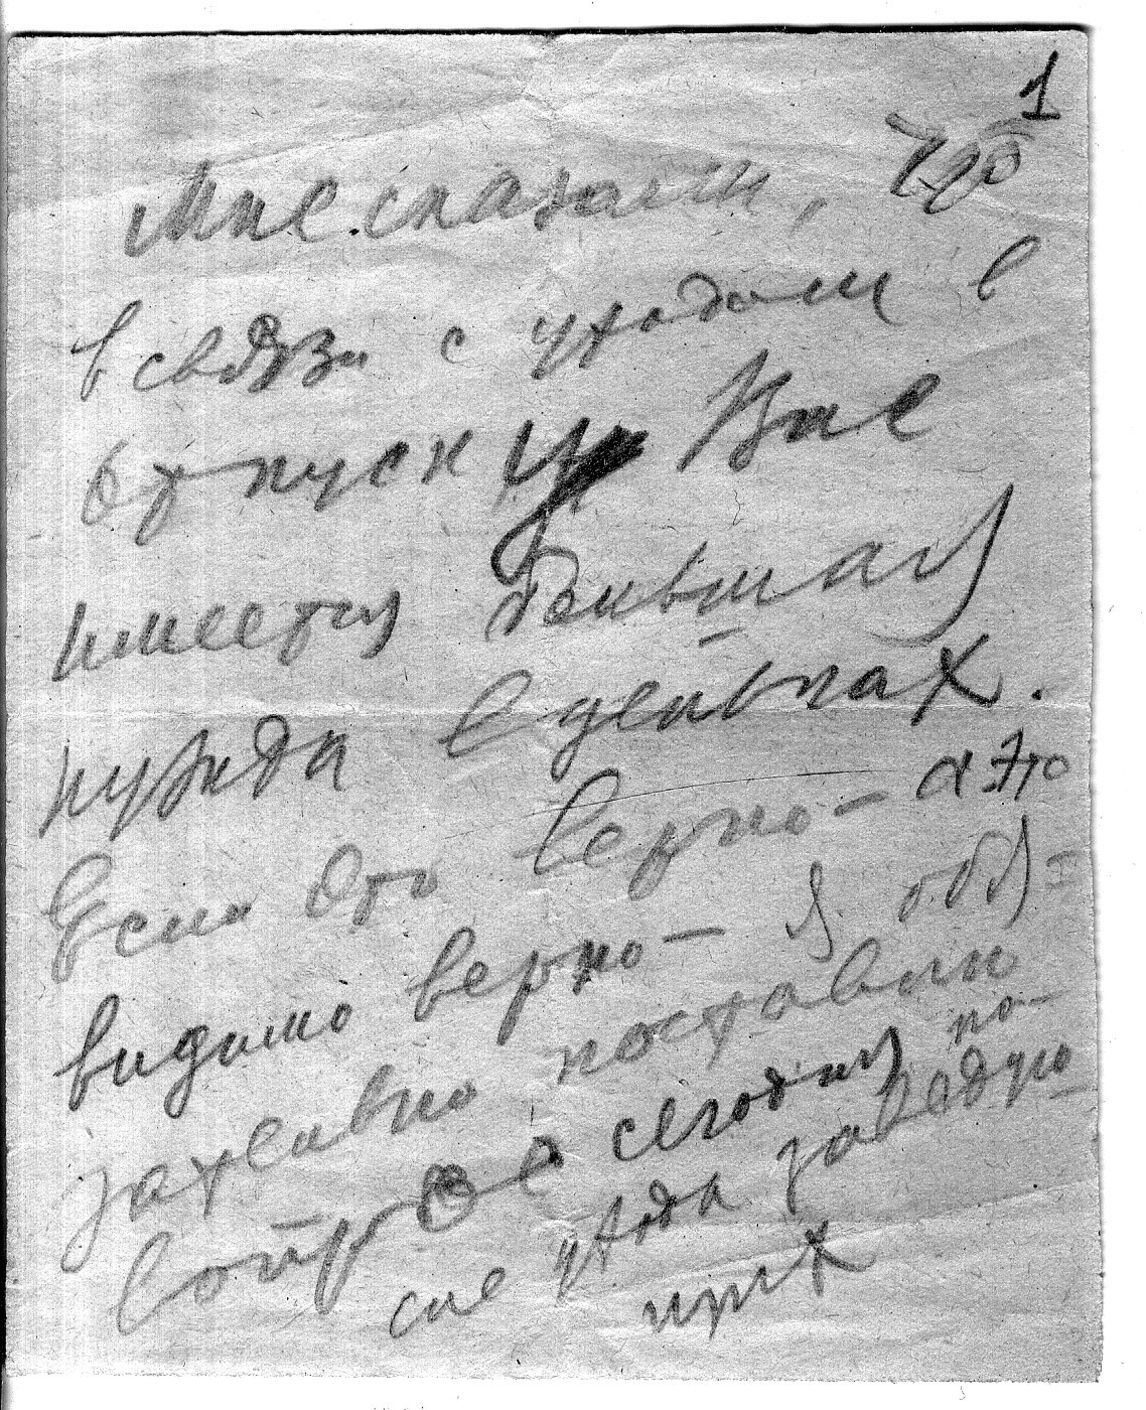 1
Мне сказали, что
в связи с уходом в
отпуск у Вас
имеется большая
нужда в деньгах.
Если это верно — а это
видимо верно — я обя-
зательно поставлю
вопрос сегодня по-
сле ухода заведую-
щих